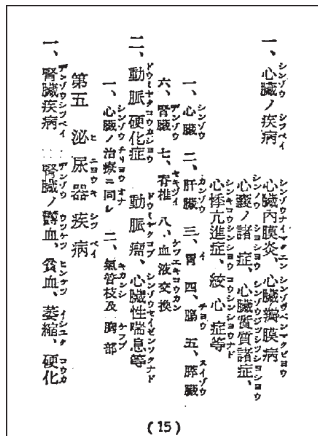 一、心臓ノ疾病
心臓内膜炎、心臓瓣膜病
心嚢ノ諸症、心臓實質諸症、
心悸亢進症、絞心症等
一、心臓 二、肝臓 三、胃 四、腸 五、膵臓
六、腎臓 七、脊椎 八、血液交換
二、動脈硬化症 動脈瘤、心臓性喘息等
一、心臓ノ治療ニ同シ 二、氣管枝及胸部
第五 泌尿器疾病
一、腎臓疾病 腎臓ノ鬱血、貧血、萎縮、硬化
(15)